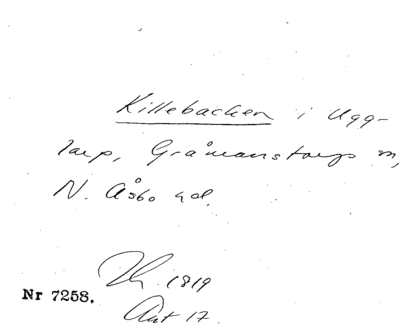 Killebacken i Ugg-
larp, Gråmanstorps sn,
N. Åsbo hd.
1819
Nr 7258.
Akt 17